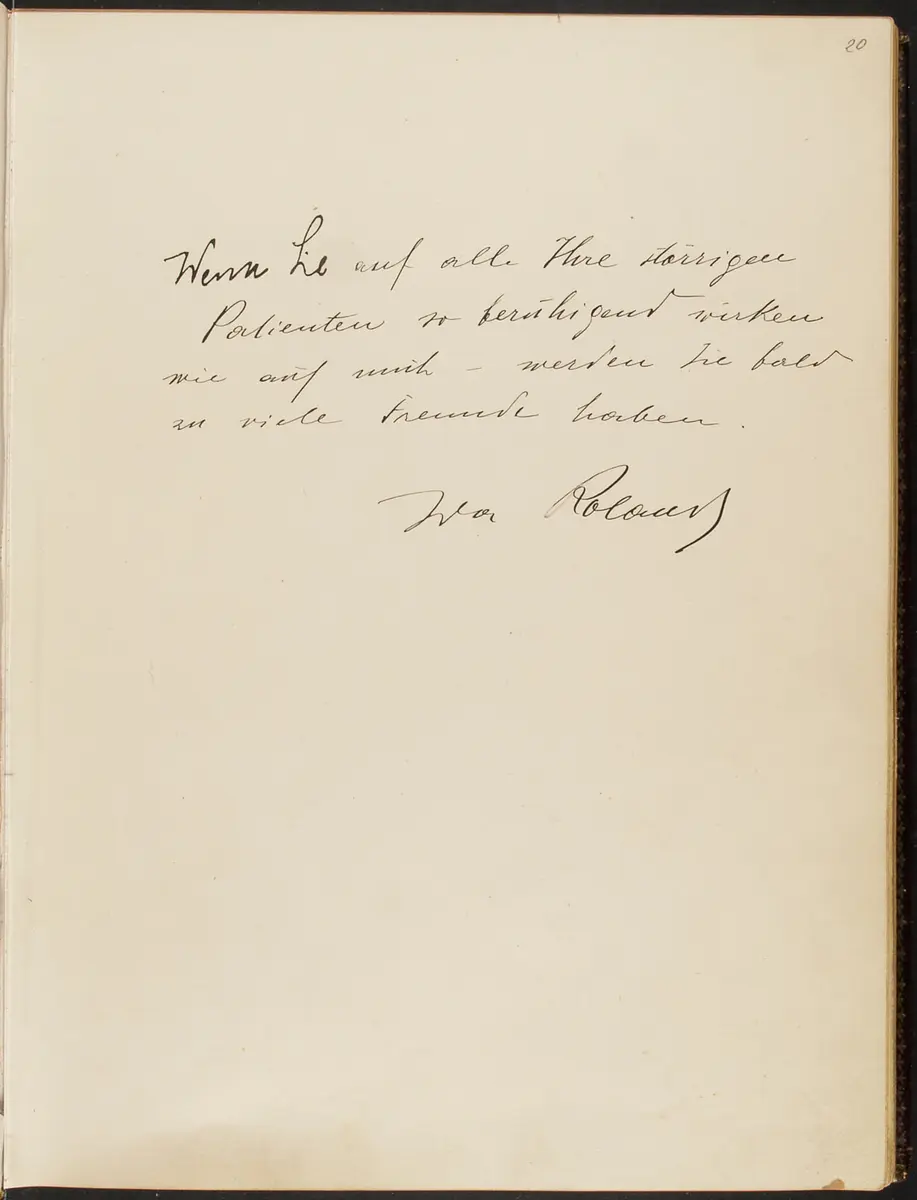 20
Wenn Sie auf alle Ihre störrigen
Patienten so beruhigend wirken
wie auf mich – werden Sie bald
zu viele Freunde haben.
Ida Roland